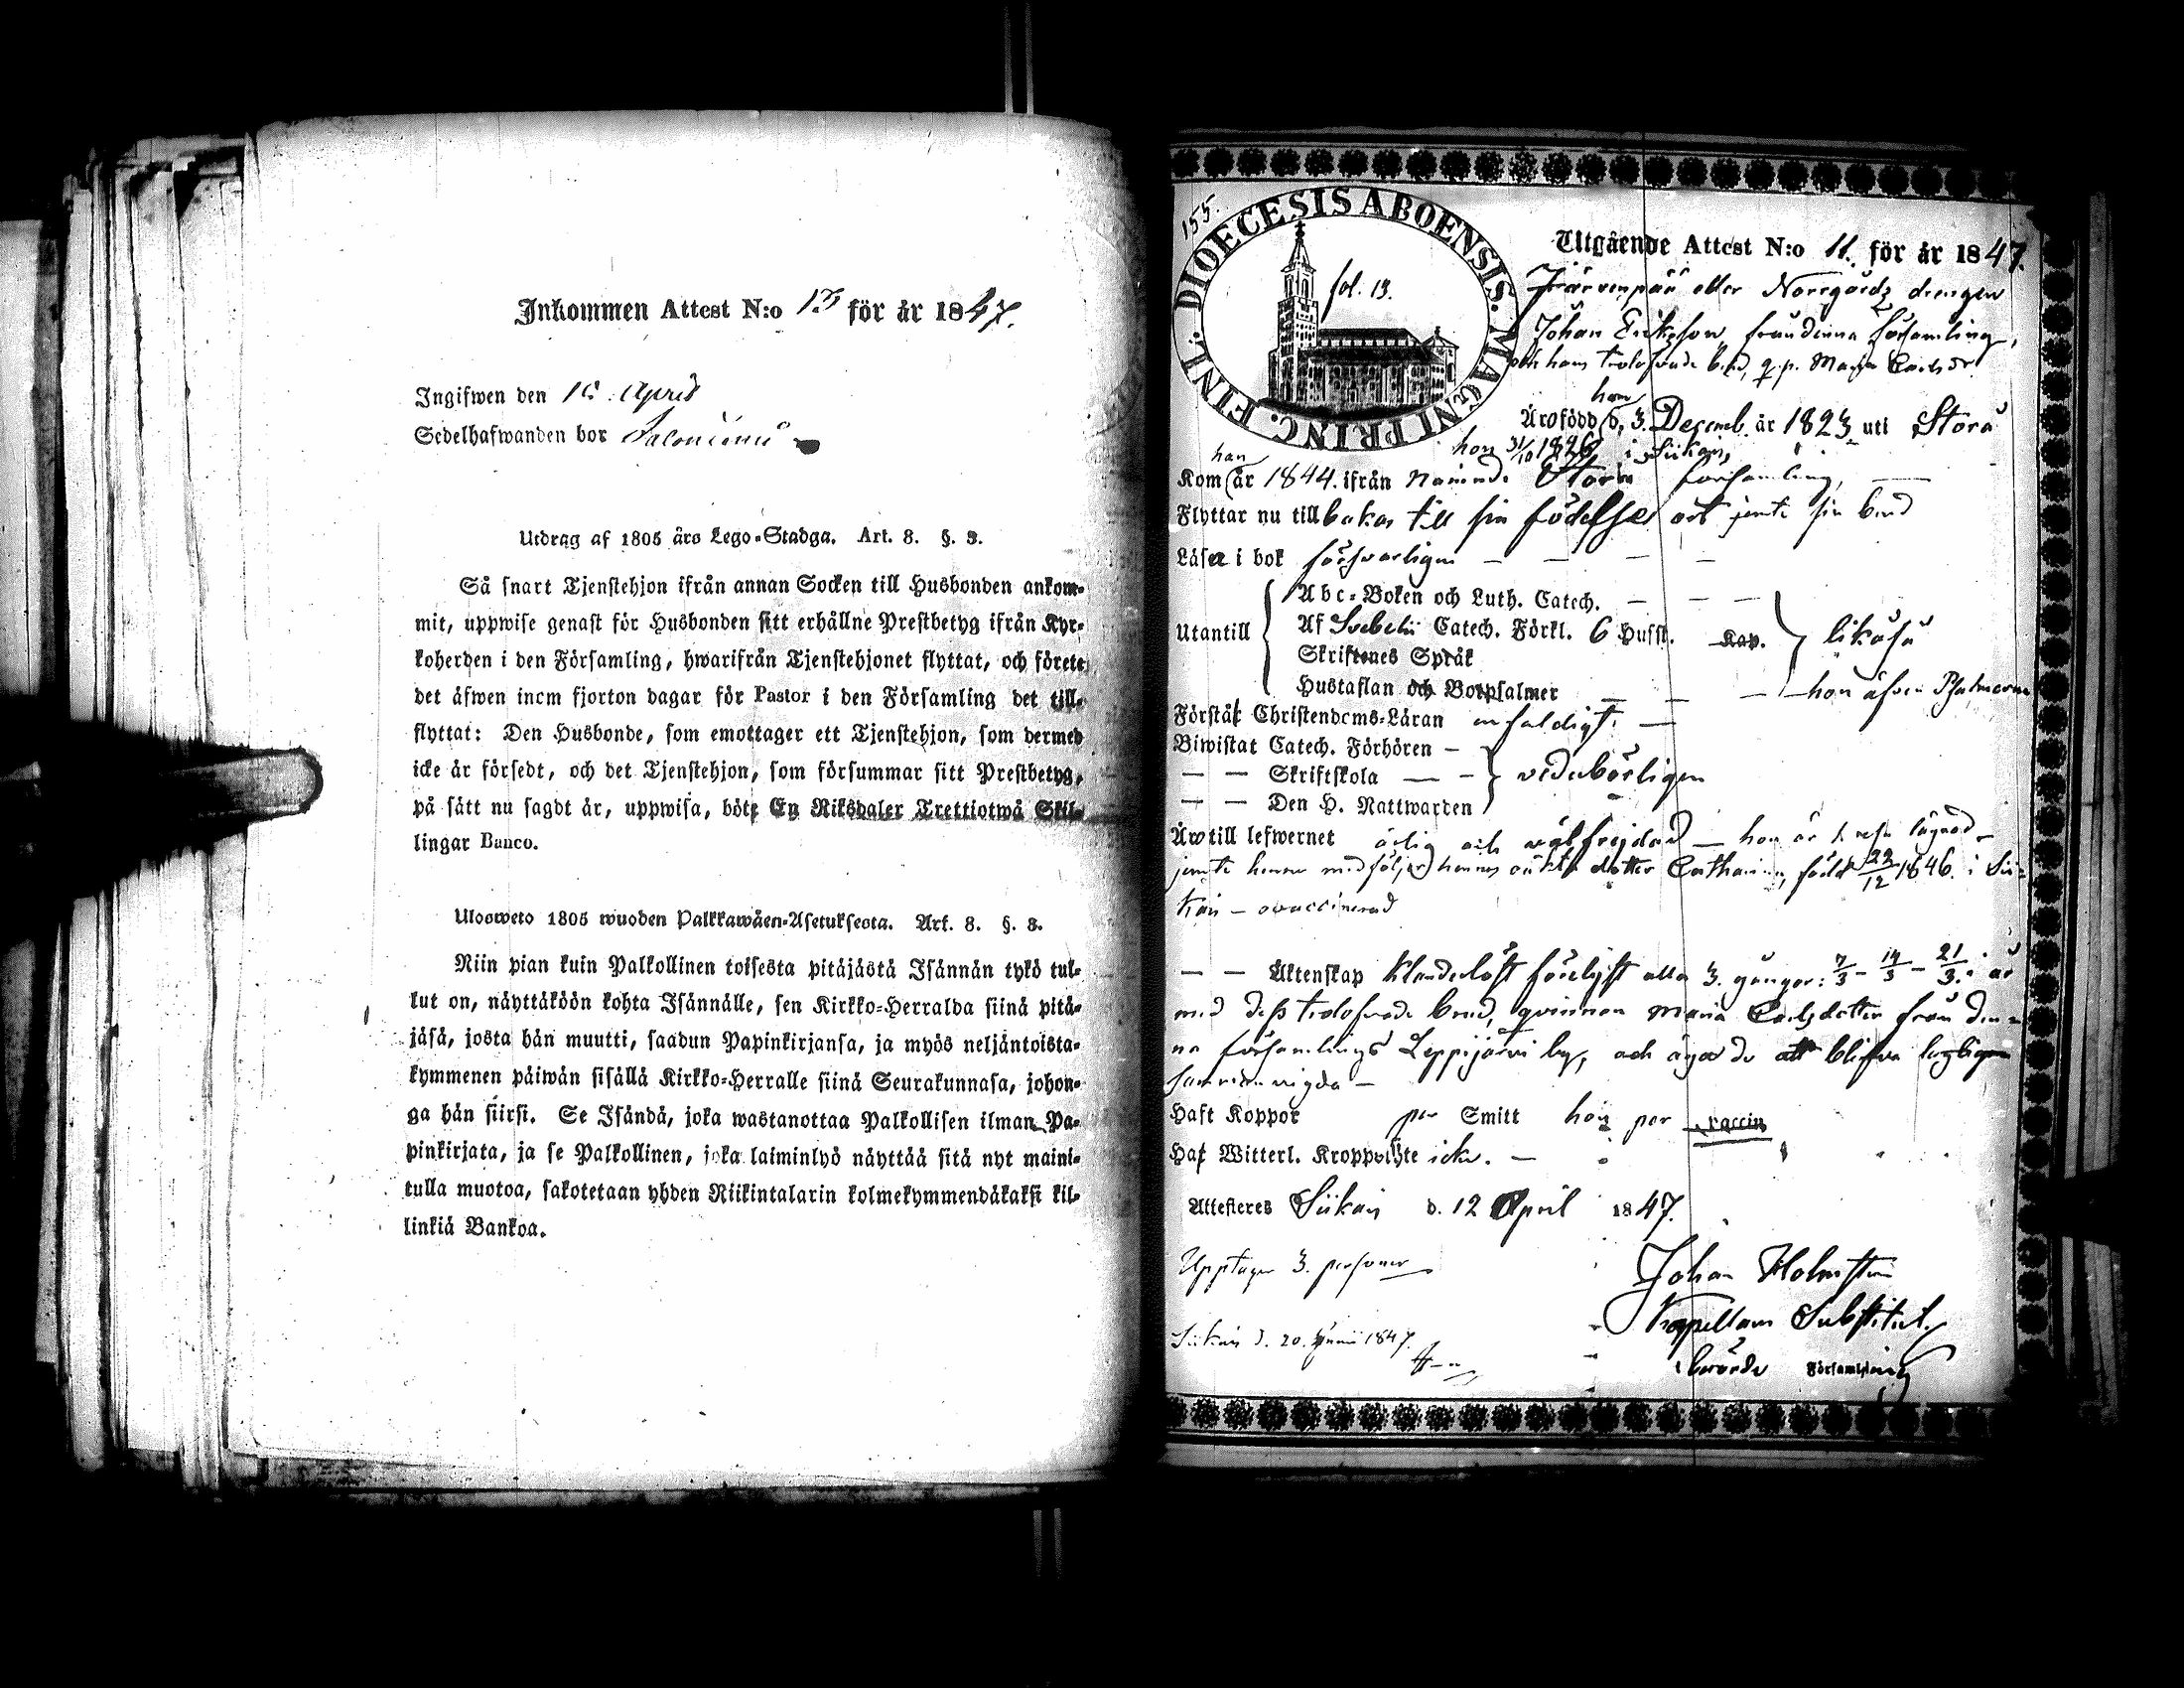 Inkommen Attest N:o 13 för år 1847.
Ingifwen den 15. April
Sedelhafwanden bor
Utdrag af 1805 års Lego-Stadga. Art. 8. §. 3.
Så snart Tjenstehjon ifrån annan Socken till Husbonden ankom-
mit, uppwise genast för Husbonden sitt erhållne Prestbetyg ifrån Kyr-
koherden i den Församling, hwarifrån Tjenstehjonet flyttat, och förete
det äfwen inom fjorton dagar för Pastor i den Församling det till-
flyttat: Den Husbonde, som emottager ett Tjenstehjon, som dermed
icke är försedt, och det Tjenstehjon, som försummar sitt Prestbetyg,
på sätt nu sagdt är, uppwisa, böte En Riksdaler Trettiotwå Skil-
lingar Banco.
Ulosweto 1805 wuoden Palkkawäen-Asetuksesta. Art. 8. §. 3.
Niin pian kuin Palkollinen toisesta pitäjästä Isännän tykö tul-
lut on, näyttäköön kohta Isännälle, sen Kirkko-Herralda siinä pitä-
jäsä, josta hän muutti, saadun Papinkirjansa, ja myös neljäntoista-
kymmenen päiwän sisällä Kirkko-Herralle siinä Seurakunnasa, johon-
ga hän siirsi. Se Isändä, joka wastanottaa Palkollisen ilman Pa-
pinkirjata, ja se Palkollinen, joka laiminlyö näyttää sitä nyt maini-
tulla muotoa, sakotetaan yhden Riikintalarin kolmekymmendäkaksi kil-
linkiä Bankoa.
155.
DIOECESIS ABOENSIS. MAGNI PRINC. FINL.
fol. 13.
Utgående Attest N:o 11. för år 1847.
Järvenpää eller Norrgårds drengen
Johan Eriksson från denna församling,
och hans trolofvade brud, q.p. Maria Carlsdr
han
Är född d. 3. Decemb. år 1823 uti Storå
hon 31/10 1826 i Siikais,
han
Kom år 1844. ifrån nämnde Storå församling,
Flyttar nu tillbakas till sin födelse ort jemte sin brud
Läser i bok försvarligen
Utantill
Abc-Boken och Luth. Catech.
Af Svebelii Catech. Förkl. 6 Hufst. Kap.
Skriftenes Språk
Hustaflan och Botpsalmer
likaså
hon äfven Psalmerna
Förstår Christendoms-Läran enfaldigt.
Biwistat Catech. Förhören
— — Skriftskola
— — Den H. Nattwarden
vederbörligen
Är till lefwernet ärlig och välfrejdad — hon är
jemte henne medföljer hennes oäkta dotter Catharina, född 22/12 1846. i Sii-
kais — ovaccinerad
— — Äktenskap klanderlöst förelyst alla 3. gånger: 7/3 – 14/3 – 21/3. i år
med dess trolofvade brud, qvinnan Maria Carlsdotter från den-
na församlings Leppijärvi by, och äga de att blifva lagligen
sammanvigda —
Haft Koppor per Smitt hon per vaccin
Har Witterl. Kroppslyte icke.
Attesteres Siikais d. 12 April 1847.
Upptager 3. personer
Johan Holmsten
Kapellans Substitut.
berörde Församling
Siikais d. 20. Junii 1847.